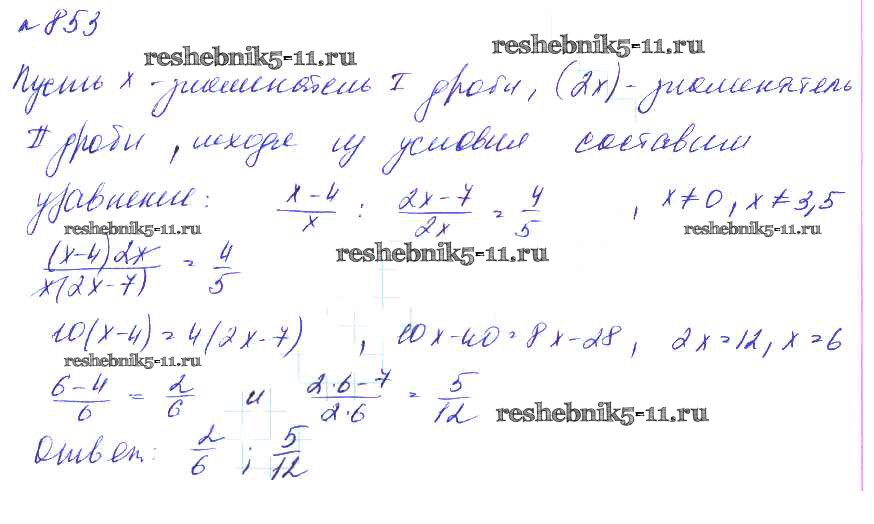 № 853
reshebnik5-11.ru reshebnik5-11.ru
Пусть x - знаменатель I дроби, (2x) - знаменатель
II дроби, исходя из условия составим
уравнение: (x-4)/x : (2x-7)/2x = 4/5 , x≠0, x≠3,5
reshebnik5-11.ru reshebnik5-11.ru reshebnik5-11.ru
(x-4)2x/x(2x-7) = 4/5
10(x-4)=4(2x-7) , 10x-40=8x-28, 2x=12, x=6
reshebnik5-11.ru
(6-4)/6 = 2/6 и (2·6-7)/2·6 = 5/12
reshebnik5-11.ru
Ответ: 2/6 ; 5/12